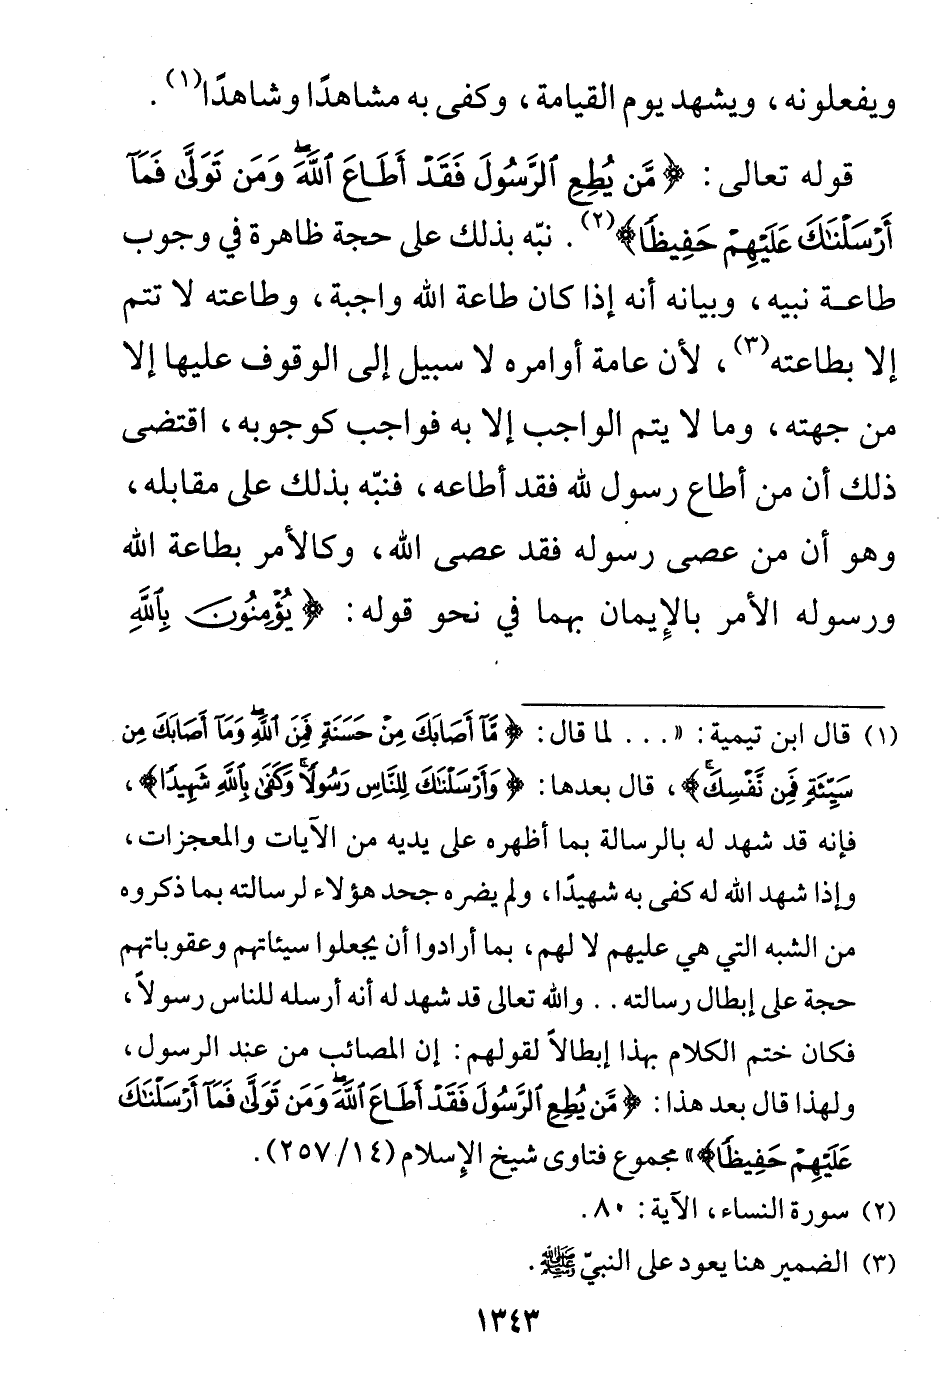 ويفعلونه، ويشهد يوم القيامة، وكفى به مشاهدًا وشاهدًا(١).
قوله تعالى: ﴿مَّن يُطِعِ ٱلرَّسُولَ فَقَدْ أَطَاعَ ٱللَّهَ ۖ وَمَن تَوَلَّىٰ فَمَآ
أَرْسَلْنَٰكَ عَلَيْهِمْ حَفِيظًا﴾(٢). نبّه بذلك على حجة ظاهرة في وجوب
طاعة نبيه، وبيانه أنه إذا كان طاعة الله واجبة، وطاعته لا تتم
إلا بطاعته(٣)، لأن عامة أوامره لا سبيل إلى الوقوف عليها إلا
من جهته، وما لا يتم الواجب إلا به فواجب كوجوبه، اقتضى
ذلك أن من أطاع رسول لله فقد أطاعه، فنبّه بذلك على مقابله،
وهو أن من عصى رسوله فقد عصى الله، وكالأمر بطاعة الله
ورسوله الأمر بالإيمان بهما في نحو قوله: ﴿يُؤْمِنُونَ بِٱللَّهِ
(١) قال ابن تيمية: «... لما قال: ﴿مَّآ أَصَابَكَ مِنْ حَسَنَةٍ فَمِنَ ٱللَّهِ ۖ وَمَآ أَصَابَكَ مِن
سَيِّئَةٍ فَمِن نَّفْسِكَ ۚ﴾، قال بعدها: ﴿وَأَرْسَلْنَٰكَ لِلنَّاسِ رَسُولًا ۚ وَكَفَىٰ بِٱللَّهِ شَهِيدًا﴾،
فإنه قد شهد له بالرسالة بما أظهره على يديه من الآيات والمعجزات،
وإذا شهد الله له كفى به شهيدًا، ولم يضره جحد هؤلاء لرسالته بما ذكروه
من الشبه التي هي عليهم لا لهم، بما أرادوا أن يجعلوا سيئاتهم وعقوباتهم
حجة على إبطال رسالته.. والله تعالى قد شهد له أنه أرسله للناس رسولاً،
فكان ختم الكلام بهذا إبطالاً لقولهم: إن المصائب من عند الرسول،
ولهذا قال بعد هذا: ﴿مَّن يُطِعِ ٱلرَّسُولَ فَقَدْ أَطَاعَ ٱللَّهَ ۖ وَمَن تَوَلَّىٰ فَمَآ أَرْسَلْنَٰكَ
عَلَيْهِمْ حَفِيظًا﴾» مجموع فتاوى شيخ الإسلام (١٤/٢٥٧).
(٢) سورة النساء، الآية: ٨٠.
(٣) الضمير هنا يعود على النبيّ ﷺ.
١٣٤٣